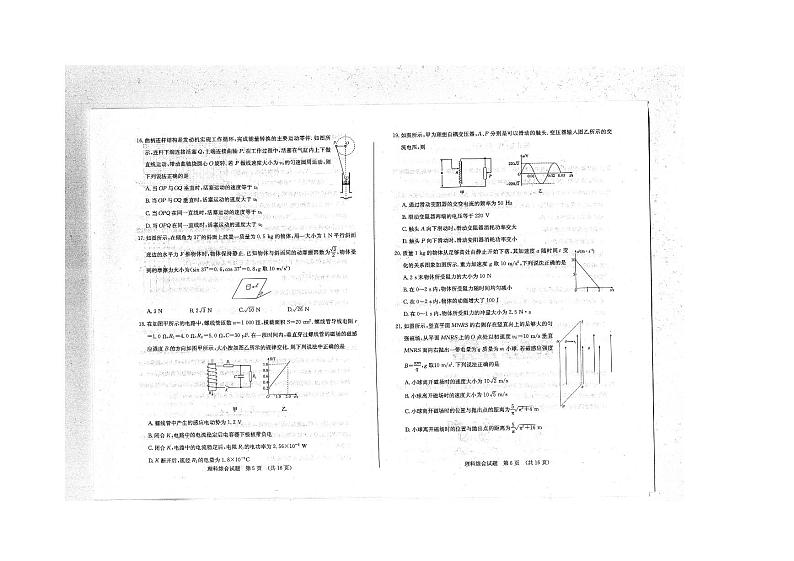 16. 曲柄连杆结构是发动机实现工作循环，完成能量转换的主要运动零件. 如图所
示，连杆下端连接活塞 Q，上端连接曲轴 P. 在工作过程中，活塞在气缸内上下做
直线运动，带动曲轴绕圆心 O 旋转. 若 P 做线速度大小为 v₀ 的匀速圆周运动，则
下列说法正确的是
A. 当 OP 与 OQ 垂直时，活塞运动的速度等于 v₀
B. 当 OP 与 OQ 垂直时，活塞运动的速度大于 v₀
C. 当 OPQ 在同一直线时，活塞运动的速度等于 v₀
D. 当 OPQ 在同一直线时，活塞运动的速度大于 v₀
17. 如图所示，在倾角为 37°的斜面上放置一质量为 0.5 kg 的物体，用一大小为 1 N 平行斜面
底边的水平力 F 推物体时，物体保持静止. 已知物体与斜面间的动摩擦因数为
，物体受
到的摩擦力大小为(sin 37°=0.6，cos 37°=0.8，g 取 10 m/s²)
A. 3 N B. 2√3 N C. √10 N
18. 在如图甲所示的电路中，螺线管匝数 n=1 000 匝，横截面积 S=20 cm². 螺线管导线电阻 r
=1.0 Ω，R₁=4.0 Ω，R₂=5.0 Ω，C=30 μF. 在一段时间内，垂直穿过螺线管的磁场的磁感
应强度 B 的方向如图甲所示，大小按如图乙所示的规律变化，则下列说法中正确的是
B/T
1.0
0.8
0.6
0.4
0.2
0 1.0 2.0 t/s
甲 乙
A. 螺线管中产生的感应电动势为 1.2 V
B. 闭合 K，电路中的电流稳定后电容器下极板带负电
C. 闭合 K，电路中的电流稳定后，电阻 R₁ 的电功率为 2.56×10⁻² W
D. K 断开后，流经 R₂ 的电量为 1.8×10⁻⁵ C
理科综合试题 第 5 页 (共 16 页)
19. 如图所示，甲为理想自耦变压器，A、P 分别是可以滑动的触头. 变压器输入图乙所示的交
流电压，则
甲 乙
A. 通过滑动变阻器的交变电流的频率为 50 Hz
B. 滑动变阻器两端的电压等于 220 V
C. 触头 A 向下滑动时，滑动变阻器消耗功率变大
D. 触头 P 向下滑动时，滑动变阻器消耗功率变小
20. 质量 1 kg 的物体从足够高处由静止开始下落，其加速度 a 随时间 t 变
化的关系图象如图所示，重力加速度 g 取 10 m/s²，下列说法正确的是
A. 2 s 末物体所受阻力的大小为 10 N
B. 在 0～2 s 内，物体所受阻力随时间均匀减小
C. 在 0～2 s 内，物体的动能增大了 100 J
D. 在 0～1 s 内，物体所受阻力的冲量大小为 2.5 N·s
21. 如图所示，竖直平面 MNRS 的右侧存在竖直向上的足够大的匀
强磁场，从平面 MNRS 上的 O 点处以初速度 v₀=10 m/s 垂直
MNRS 面向右抛出一带电量为 q 质量为 m 小球. 若磁感应强度
，下列说法正确的是
A. 小球离开磁场时的速度大小为 10√2 m/s
B. 小球离开磁场时的速度大小为 10√5 m/s
C. 小球离开磁场时的位置与抛出点的距离为
D. 小球离开磁场时的位置与抛出点的距离为
理科综合试题 第 6 页 (共 16 页)